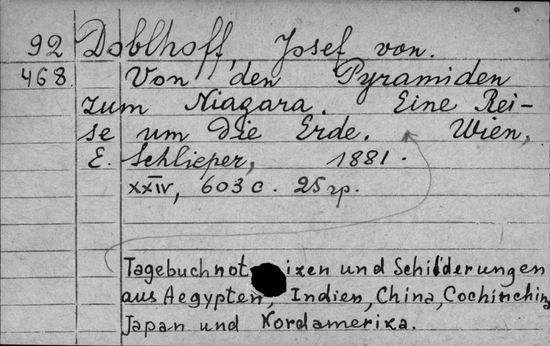 92 Doblhoff, Josef von.
468. Von den Pyramiden
zum Niagara. Eine Rei-
se um die Erde. Wien,
E. Schlieper, 1881.
XXIV, 603 c. 25 гр.
Tagebuchnot izen und Schilderungen
aus Aegypten, Indien, China, Cochinchina
Japan und Nordamerika.